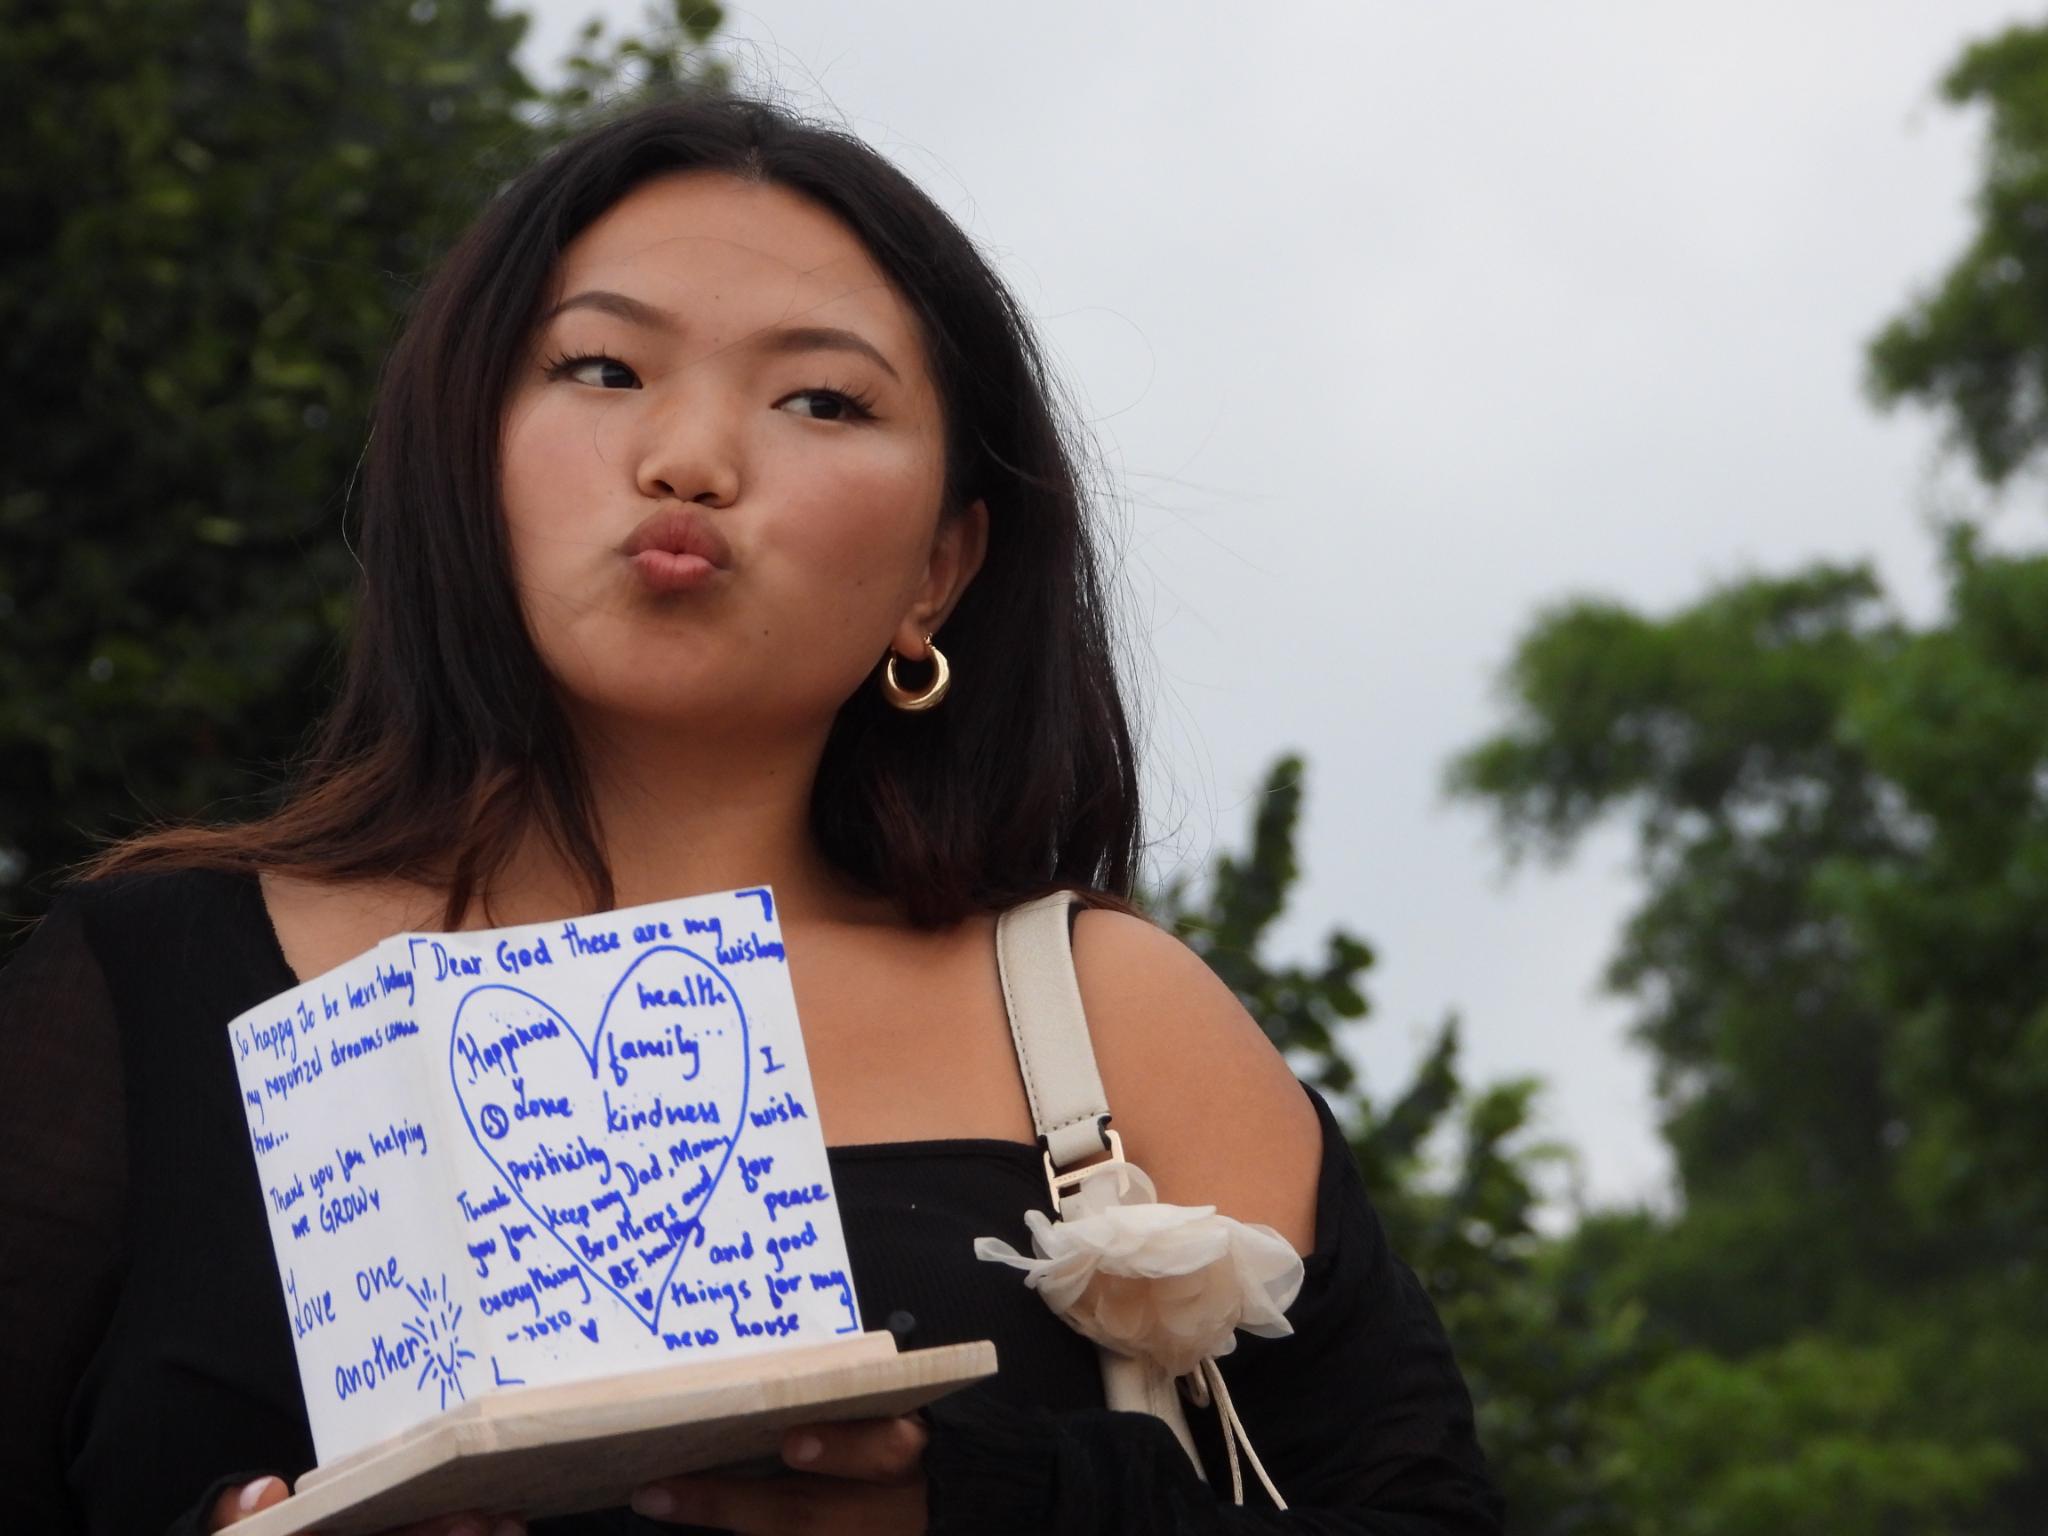 So happy to be here today
my rapunzel dreams come
tru...
Thank you for helping
me GROW
Love one
another
Dear God these are my
wishes
health
Happiness family...
Love kindness
positivity
Thank you for
everything
-xoxo
keep my Dad, Mom
Brothers and
BF healthy
I
wish
for
peace
and good
things for my
new house